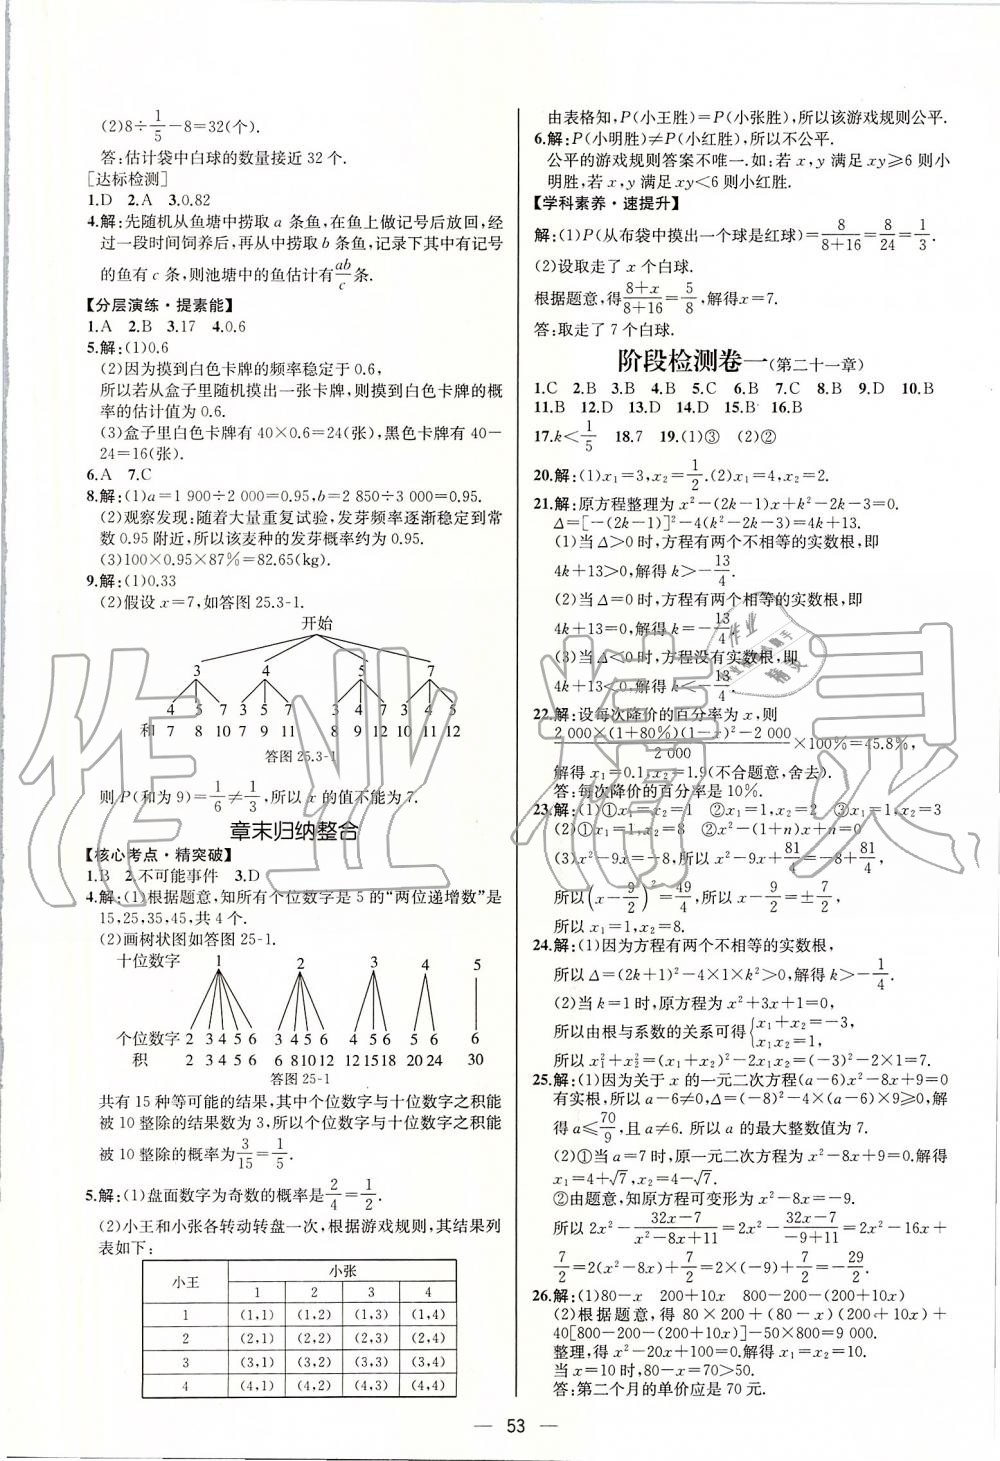 (2)8÷1/5−8=32(个).
答:估计袋中白球的数量接近 32 个.
[达标检测]
1.D 2.A 3.0.82
4.解:先随机从鱼塘中捞取 a 条鱼,在鱼上做记号后放回,经
过一段时间饲养后,再从中捞取 b 条鱼,记录下其中有记号
的鱼有 c 条,则池塘中的鱼估计有ab/c条.
【分层演练·提素能】
1.A 2.B 3.17 4.0.6
5.解:(1)0.6
(2)因为摸到白色卡牌的频率稳定于 0.6,
所以若从盒子里随机摸出一张卡牌,则摸到白色卡牌的概
率的估计值为 0.6.
(3)盒子里白色卡牌有 40×0.6=24(张),黑色卡牌有 40−
24=16(张).
6.A 7.C
8.解:(1)a=1 900÷2 000=0.95,b=2 850÷3 000=0.95.
(2)观察发现:随着大量重复试验,发芽频率逐渐稳定到常
数 0.95 附近,所以该麦种的发芽概率约为 0.95.
(3)100×0.95×87%=82.65(kg).
9.解:(1)0.33
(2)假设 x=7,如答图 25.3-1.
开始
3 4 5 7
4 5 7 3 5 7 3 4 7 3 4 5
和 7 8 10 7 9 11 8 9 12 10 11 12
答图 25.3-1
则 P(和为 9)=1/6≠1/3,所以 x 的值不能为 7.
章末归纳整合
【核心考点·精突破】
1.B 2.不可能事件 3.D
4.解:(1)根据题意,知所有个位数字是 5 的“两位递增数”是
15,25,35,45,共 4 个.
(2)画树状图如答图 25-1.
十位数字 1 2 3 4 5
个位数字 2 3 4 5 6 3 4 5 6 4 5 6 5 6 6
积 2 3 4 5 6 6 8 10 12 12 15 18 20 24 30
答图 25-1
共有 15 种等可能的结果,其中个位数字与十位数字之积能
被 10 整除的结果数为 3,所以个位数字与十位数字之积能
被 10 整除的概率为3/15=1/5.
5.解:(1)盘面数字为奇数的概率是2/4=1/2.
(2)小王和小张各转动转盘一次,根据游戏规则,其结果列
表如下:
小王 小张
1 2 3 4
1 (1,1) (1,2) (1,3) (1,4)
2 (2,1) (2,2) (2,3) (2,4)
3 (3,1) (3,2) (3,3) (3,4)
4 (4,1) (4,2) (4,3) (4,4)
由表格知,P(小王胜)=P(小张胜),所以该游戏规则公平.
6.解:P(小明胜)≠P(小红胜),所以不公平.
公平的游戏规则答案不唯一.如:若 x,y 满足 xy≥6 则小
明胜,若 x,y 满足 xy<6 则小红胜.
【学科素养·速提升】
解:(1)P(从布袋中摸出一个球是红球)=8/(8+16)=8/24=1/3.
(2)设取走了 x 个白球.
根据题意,得(8+x)/(8+16)=5/8,解得 x=7.
答:取走了 7 个白球.
阶段检测卷一(第二十一章)
1.C 2.B 3.B 4.B 5.C 6.B 7.C 8.B 9.D 10.B
11.B 12.D 13.D 14.D 15.B 16.B
17.k<1/5 18.7 19.(1)③ (2)②
20.解:(1)x₁=3,x₂=1/2.(2)x₁=4,x₂=2.
21.解:原方程整理为 x²−(2k−1)x+k²−2k−3=0.
Δ=[−(2k−1)]²−4(k²−2k−3)=4k+13.
(1)当 Δ>0 时,方程有两个不相等的实数根,即
4k+13>0,解得 k>−13/4.
(2)当 Δ=0 时,方程有两个相等的实数根,即
4k+13=0,解得 k=−13/4.
(3)当 Δ<0 时,方程没有实数根,即
4k+13<0,解得 k<−13/4.
22.解:设每次降价的百分率为 x,则
(2 000×(1+80%)(1−x)²−2 000)/2 000×100%=45.8%,
解得 x₁=0.1,x₂=1.9(不合题意,舍去).
答:每次降价的百分率是 10%.
23.解:(1)①x₁=x₂=1 ②x₁=1,x₂=2 ③x₁=1,x₂=3
(2)①x₁=1,x₂=8 ②x²−(1+n)x+n=0
(3)x²−9x=−8,x²−9x+81/4=−8+81/4,
所以(x−9/2)²=49/4,所以 x−9/2=±7/2,
所以 x₁=1,x₂=8.
24.解:(1)因为方程有两个不相等的实数根,
所以 Δ=(2k+1)²−4×1×k²>0,解得 k>−1/4.
(2)当 k=1 时,原方程为 x²+3x+1=0,
所以由根与系数的关系可得{x₁+x₂=−3, x₁x₂=1,
所以 x₁²+x₂²=(x₁+x₂)²−2x₁x₂=(−3)²−2×1=7.
25.解:(1)因为关于 x 的一元二次方程(a−6)x²−8x+9=0
有实根,所以 a−6≠0,Δ=(−8)²−4×(a−6)×9≥0,解
得 a≤70/9,且 a≠6. 所以 a 的最大整数值为 7.
(2)①当 a=7 时,原一元二次方程为 x²−8x+9=0.解得
x₁=4+√7,x₂=4−√7.
②由题意,知原方程可变形为 x²−8x=−9.
所以 2x²−(32x−7)/(x²−8x+11)=2x²−(32x−7)/(−9+11)=2x²−16x+
7/2=2(x²−8x)+7/2=2×(−9)+7/2=−29/2.
26.解:(1)80−x 200+10x 800−200−(200+10x)
(2)根据题意,得 80×200+(80−x)(200+10x)+
40[800−200−(200+10x)]−50×800=9 000.
整理,得 x²−20x+100=0.解得 x₁=x₂=10.
当 x=10 时,80−x=70>50.
答:第二个月的单价应是 70 元.
— 53 —
作业精灵